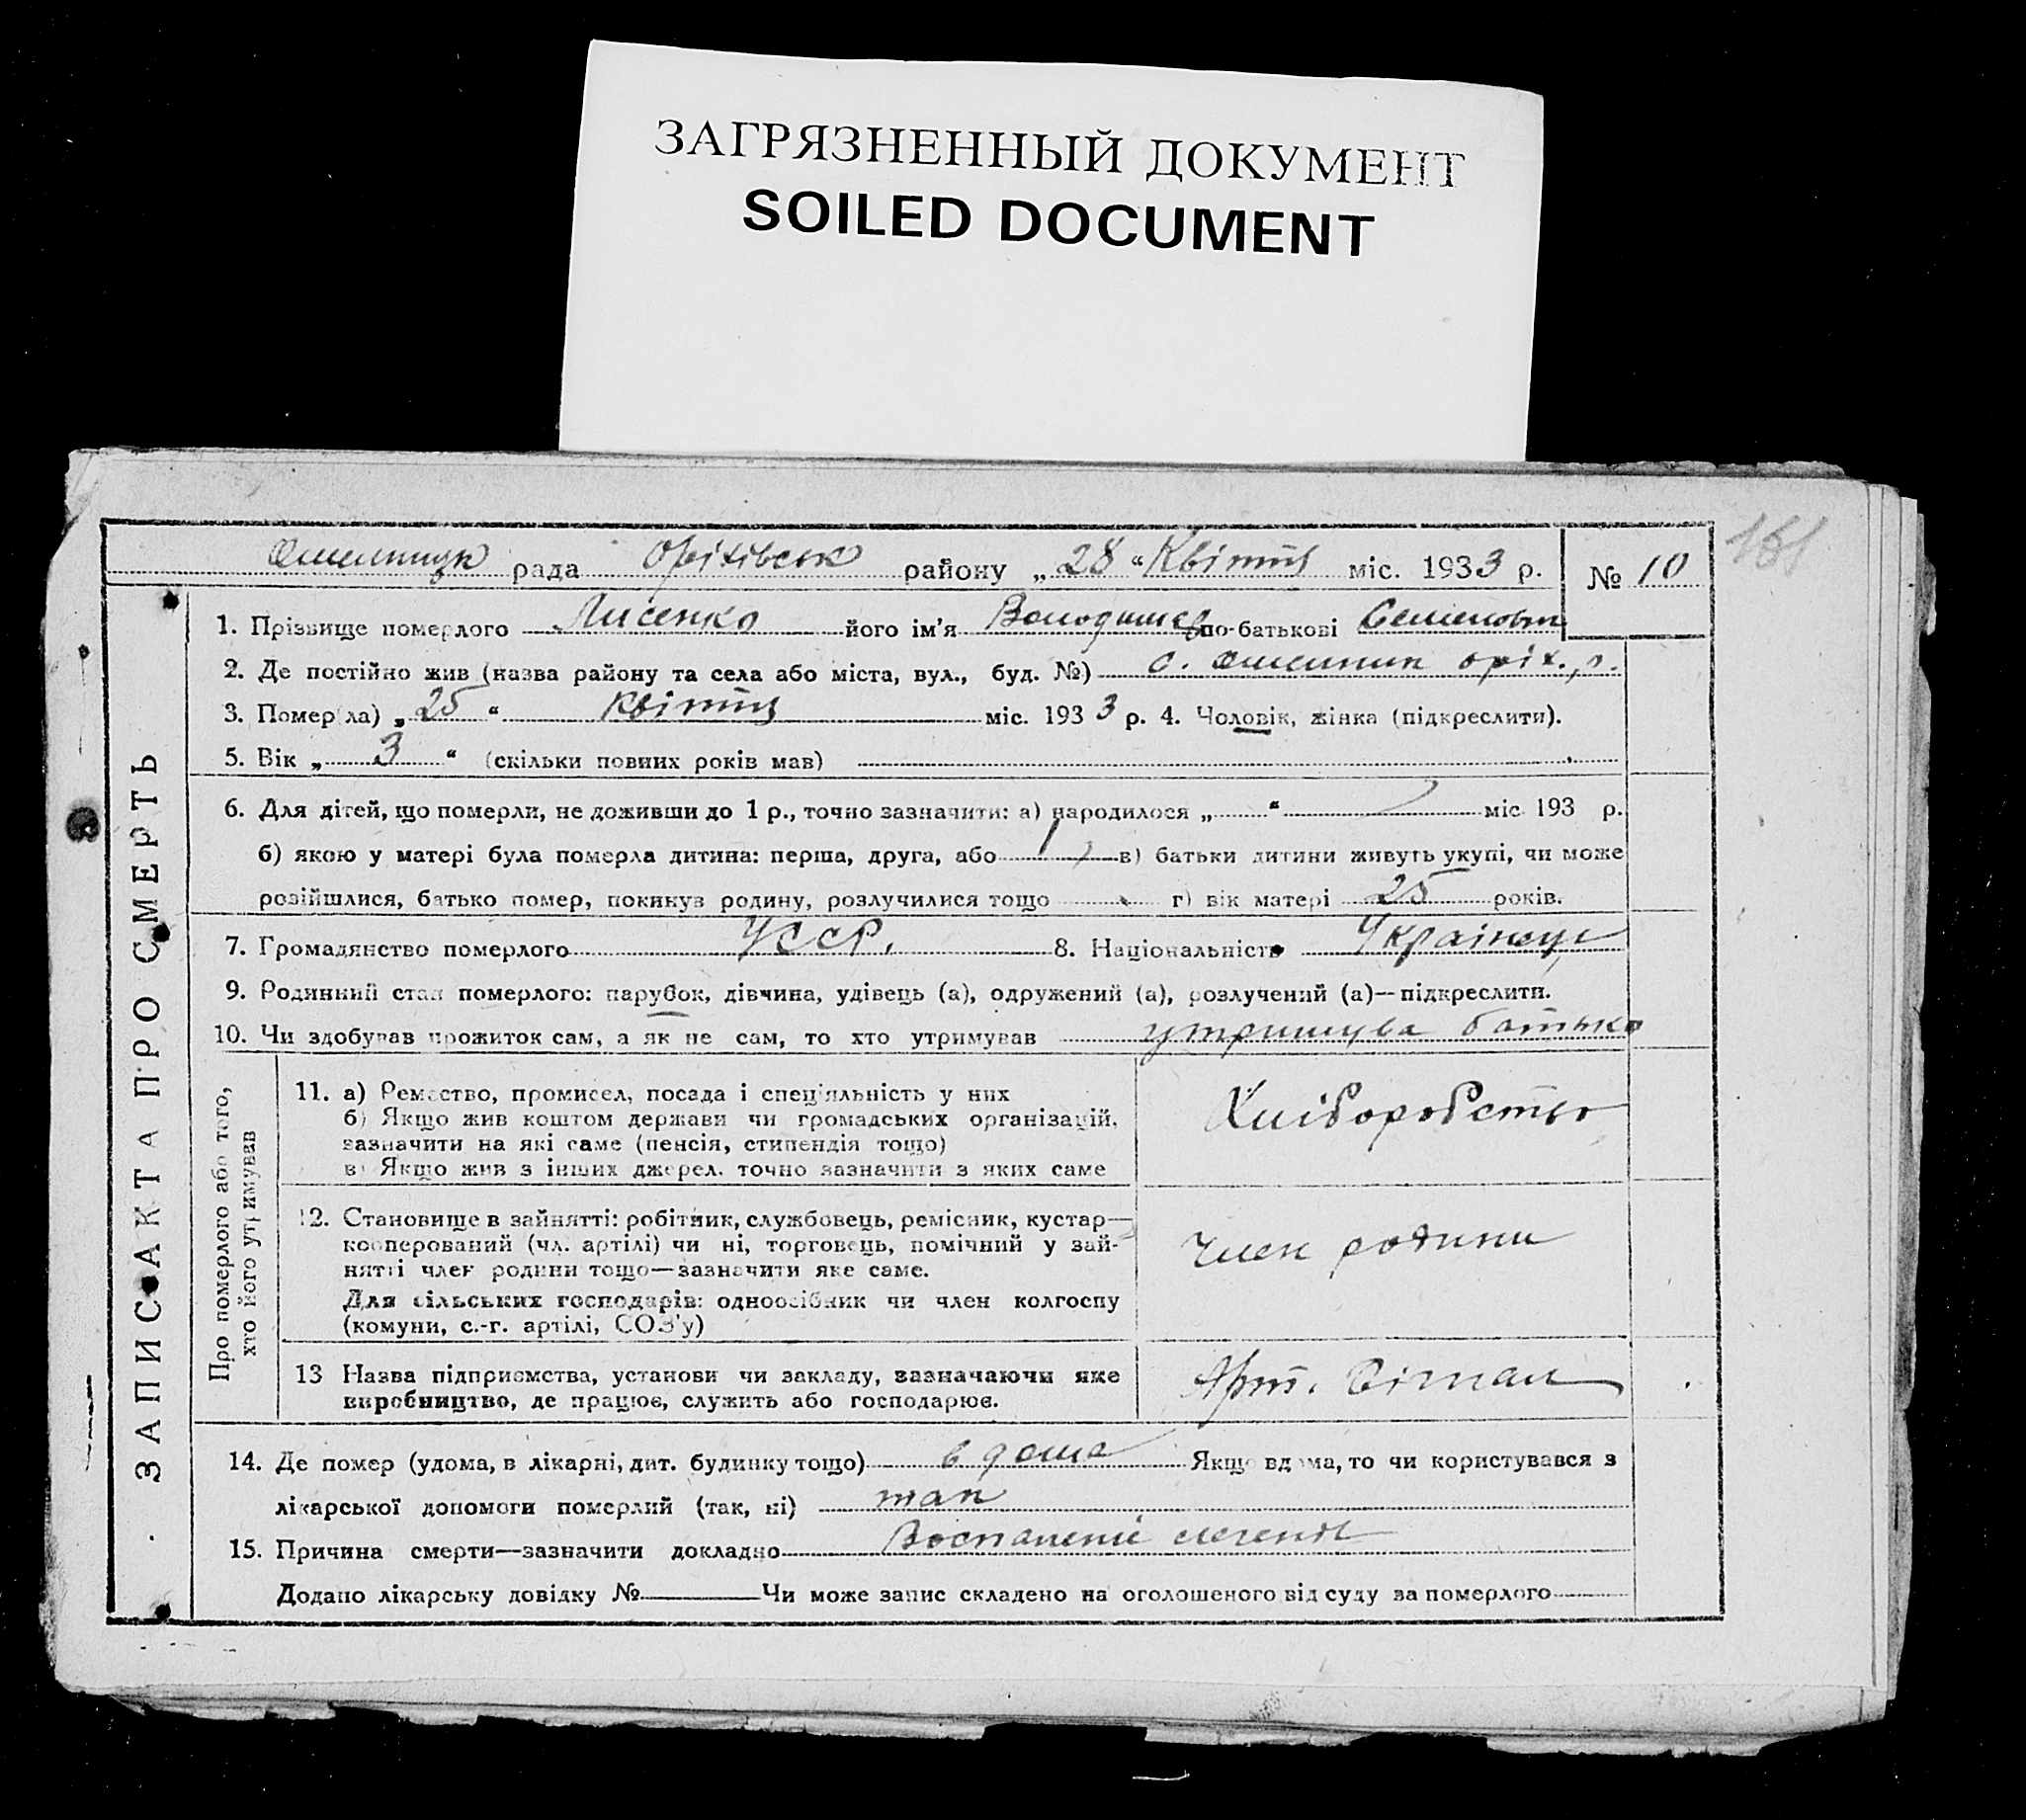 ЗАГРЯЗНЕННЫЙ ДОКУМЕНТ
SOILED DOCUMENT
161
рада Оріхівськ району „28“ Квітня міс. 1933 р. № 10
ЗАПИС АКТА ПРО СМЕРТЬ
1. Прізвище померлого Лисенко його ім'я Володимер по-батькові Семенович
2. Де постійно жив (назва району та села або міста, вул., буд. №) с. Омельник оріх. р.
3. Помер(ла) „25“ квітня міс. 1933 р. 4. Чоловік, жінка (підкреслити).
5. Вік „3“ (скільки повних років мав)
6. Для дітей, що померли, не доживши до 1 р., точно зазначити: а) народилося „ “ міс. 193 р.
б) якою у матері була померла дитина: перша, друга, або в) батьки дитини живуть укупі, чи може
розійшлися, батько помер, покинув родину, розлучилися тощо г) вік матері 25 років.
7. Громадянство померлого УССР. 8. Національність Українец
9. Родинний стан померлого: парубок, дівчина, удівець (а), одружений (а), розлучений (а)—підкреслити.
10. Чи здобував прожиток сам, а як не сам, то хто утримував утримува батько
Про померлого або того,
хто його утримував
11. а) Ремество, промисел, посада і спеціяльність у них
б) Якщо жив коштом держави чи громадських організацій,
зазначити на які саме (пенсія, стипендія тощо)
в) Якщо жив з інших джерел, точно зазначити з яких саме
Хліборобство
12. Становище в зайнятті: робітник, службовець, ремісник, кустар—
кооперований (чл. артілі) чи ні, торговець, помічний у зай-
нятті член родини тощо—зазначити яке саме.
Для сільських господарів: одноосібник чи член колгоспу
(комуни, с.-г. артілі, СОЗ'у)
Член родини
13 Назва підприємства, установи чи закладу, зазначаючи яке
виробництво, де працює, служить або господарює.
Арт.
14. Де помер (удома, в лікарні, дит. будинку тощо) в дома Якщо вдома, то чи користувався з
лікарської допомоги померлий (так, ні) так
15. Причина смерти—зазначити докладно Воспаленіє
Додано лікарську довідку № Чи може запис складено на оголошеного від суду за померлого